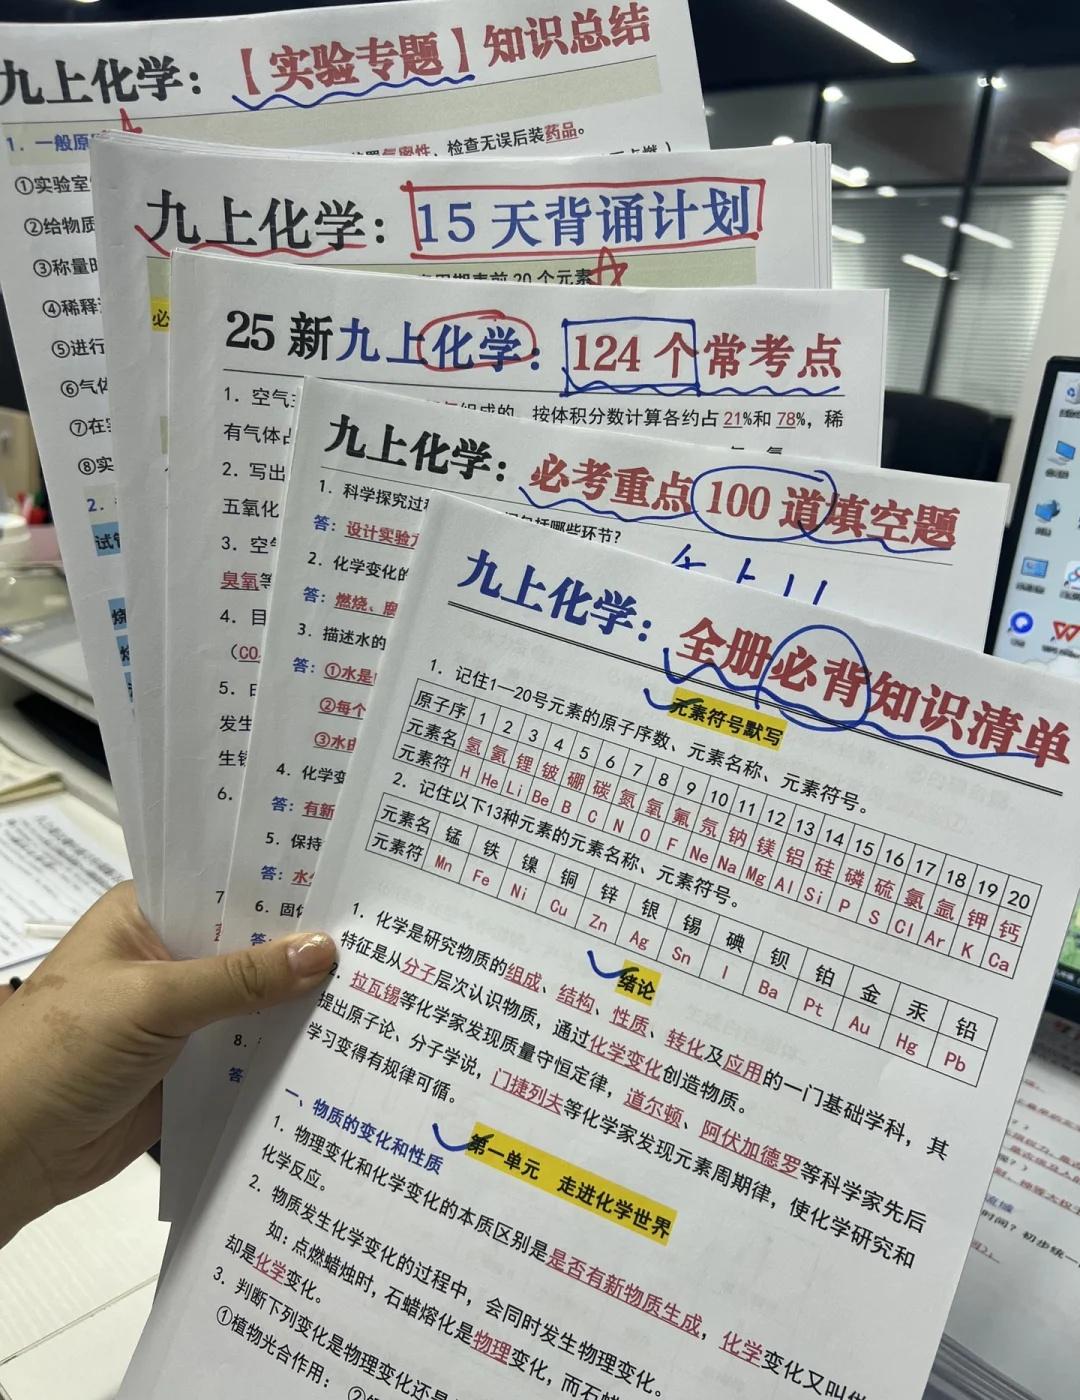 九上化学：【实验专题】知识总结
1. 一般原
气密性，检查无误后装药品。
①实验室
②给物质
③称量时
④稀释
⑤进行
⑥气体
⑦在实
⑧实
2.
试管
九上化学：15天背诵计划
前20个元素
必
25新九上化学：124个常考点
1. 空气主
组成的，按体积分数计算各约占21%和78%，稀
有气体占
2. 写出
五氧化
3. 空气
臭氧等
4. 目
（CO
5.
发生
生锈
6.
7
8.
九上化学：必考重点100道填空题
1. 科学探究过程
包括哪些环节？
答：设计实验方
2. 化学变化的
答：燃烧、腐
3. 描述水的
答：①水是由
②每个
③水由
4. 化学变
答：有新
5. 保持
答：水分
6. 固体
答：
答
九上化学：全册必背知识清单
元素符号默写
1. 记住1—20号元素的原子序数、元素名称、元素符号。
原子序 1 2 3 4 5 6 7 8 9 10 11 12 13 14 15 16 17 18 19 20
元素名 氢 氦 锂 铍 硼 碳 氮 氧 氟 氖 钠 镁 铝 硅 磷 硫 氯 氩 钾 钙
元素符 H He Li Be B C N O F Ne Na Mg Al Si P S Cl Ar K Ca
2. 记住以下13种元素的元素名称、元素符号。
元素名 锰 铁 镍 铜 锌 银 锡 碘 钡 铂 金 汞 铅
元素符 Mn Fe Ni Cu Zn Ag Sn I Ba Pt Au Hg Pb
绪论
1. 化学是研究物质的组成、结构、性质、转化及应用的一门基础学科，其
特征是从分子层次认识物质，通过化学变化创造物质。
2. 拉瓦锡等化学家发现质量守恒定律，道尔顿、阿伏加德罗等科学家先后
提出原子论、分子学说，门捷列夫等化学家发现元素周期律，使化学研究和
学习变得有规律可循。
第一单元 走进化学世界
一、物质的变化和性质
1. 物理变化和化学变化的本质区别是是否有新物质生成，化学变化又叫做
化学反应。
2. 物质发生化学变化的过程中，会同时发生物理变化。
如：点燃蜡烛时，石蜡熔化是物理变化，而石蜡
却是化学变化。
3. 判断下列变化是物理变化还是
①植物光合作用：